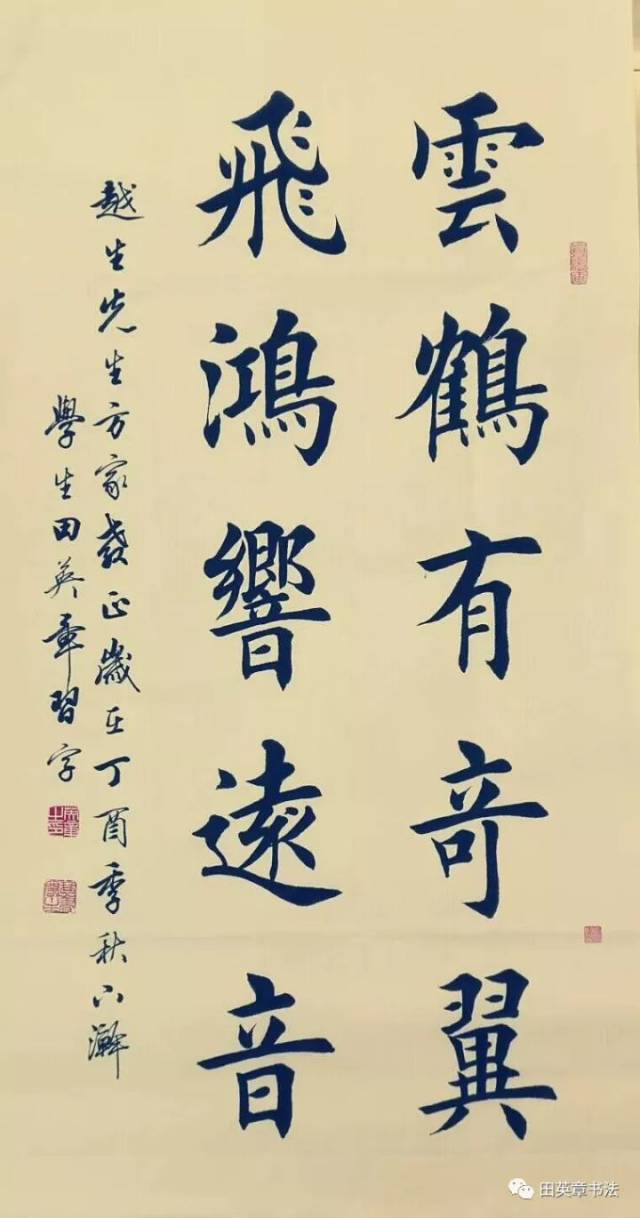 雲鶴有竒翼
飛鴻響遠音
越生先生方家教正歲在丁酉季秋下澣
學生田英章習字
田英章书法